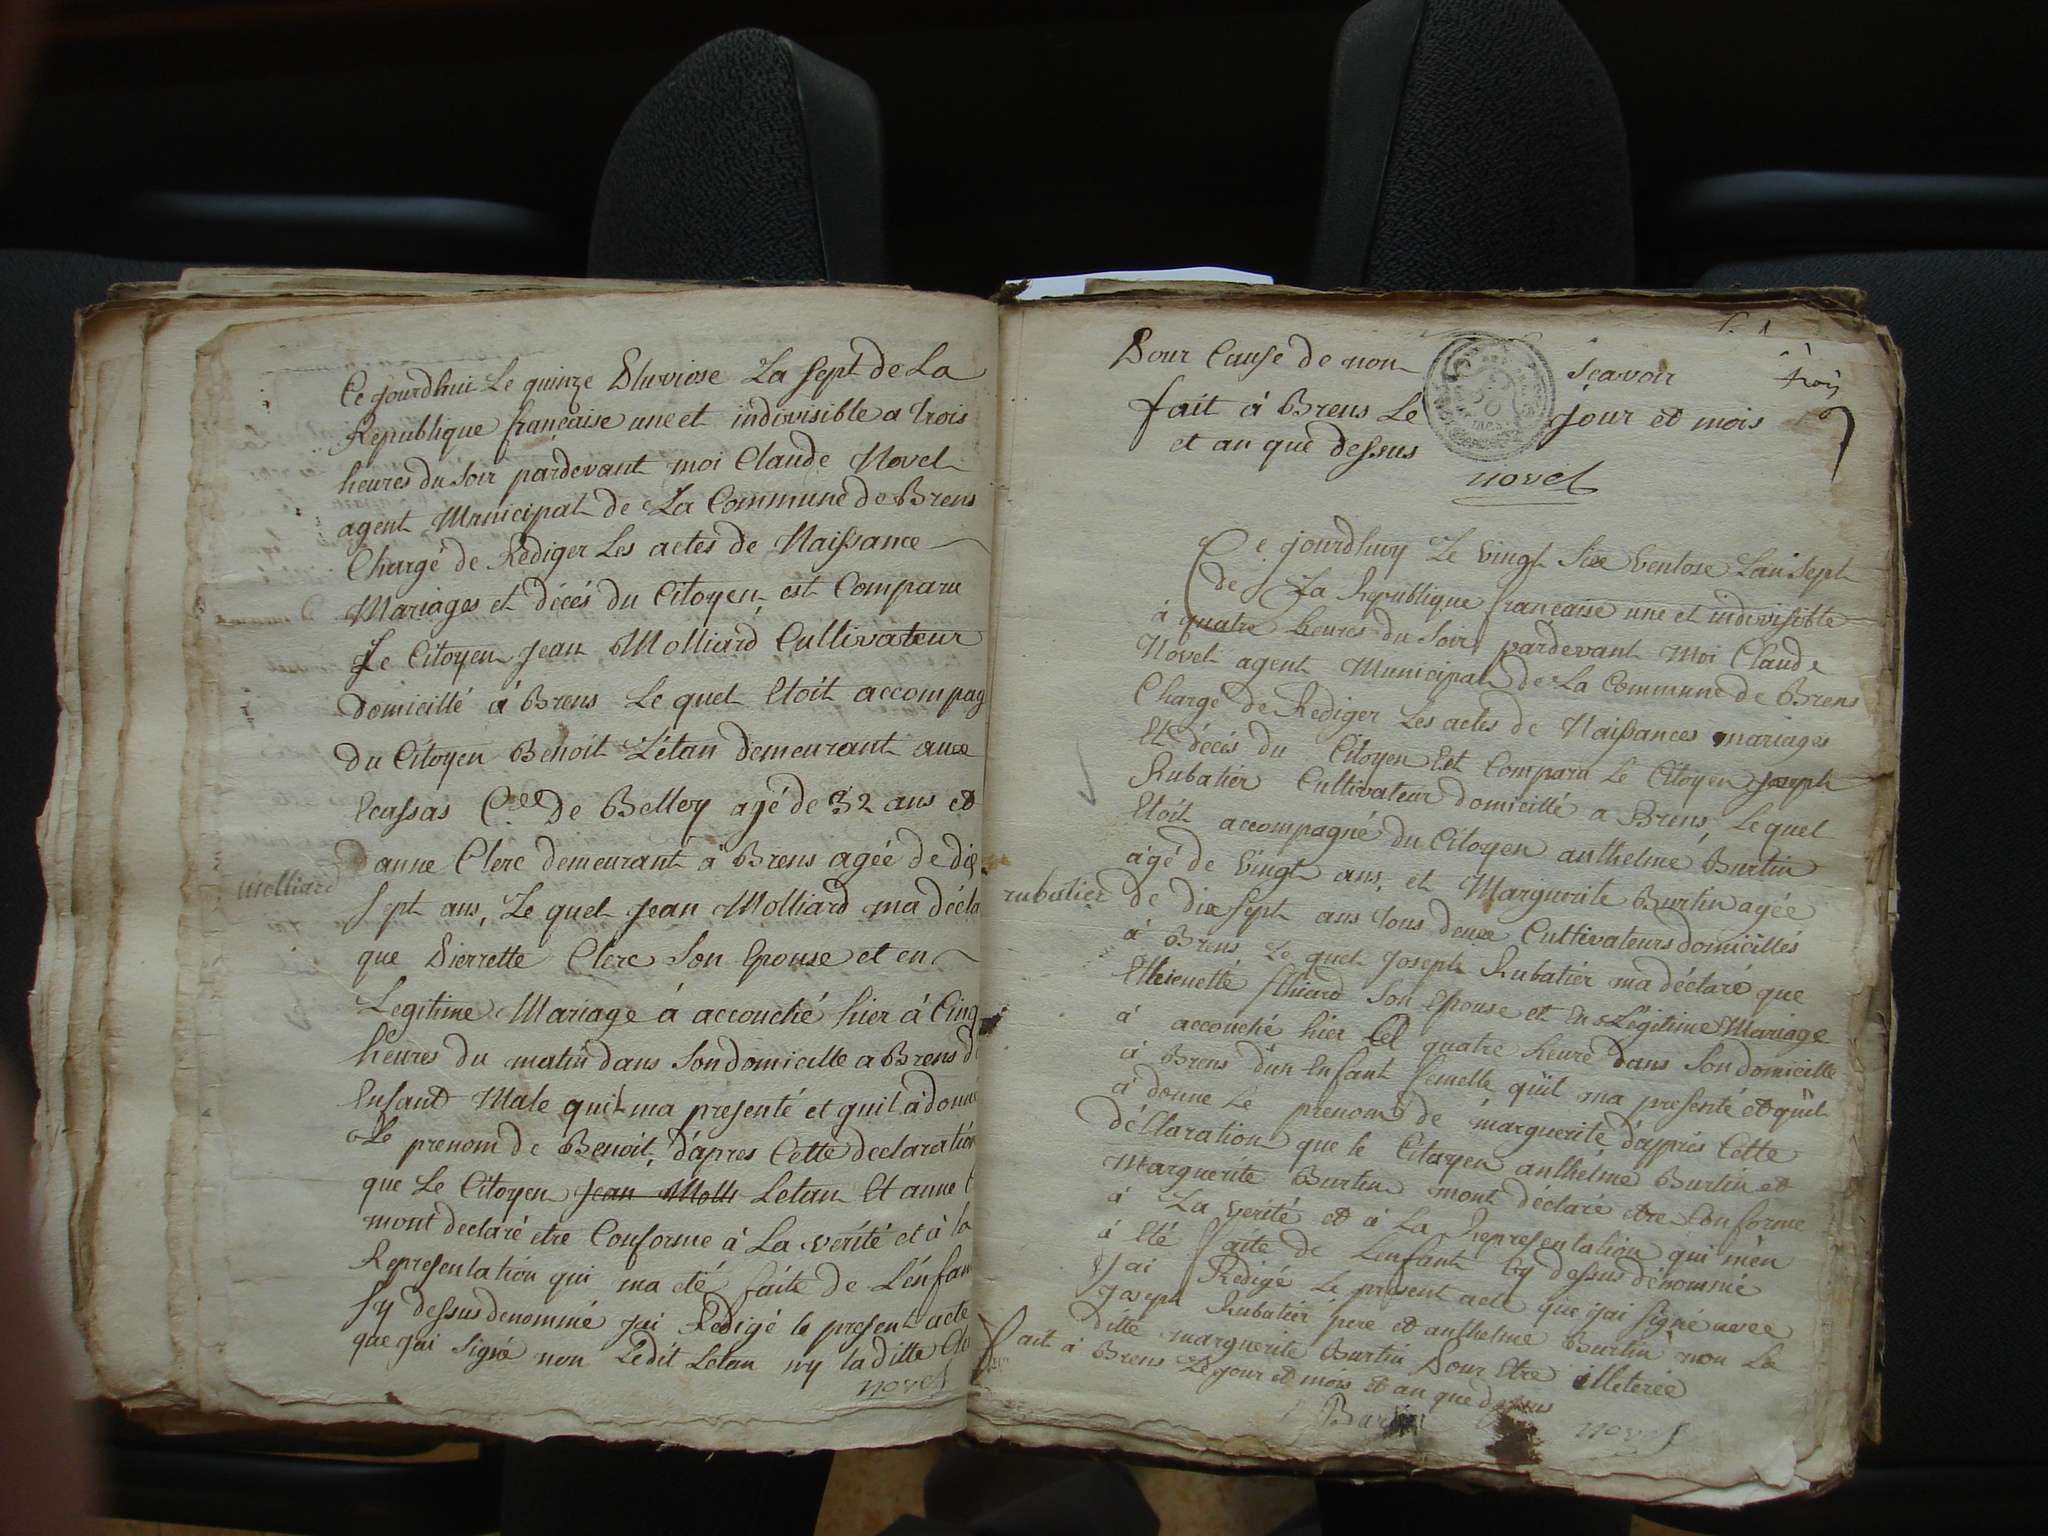 Ce jourdhui Le quinze Pluviose La sept de La
Republique française une et indivisible a trois
heures du soir pardevant moi Claude Novel
agent Municipal de La Commune de Brens
Chargé de Rediger Les actes de Naissance
Mariages et décés du Citoyen, est Comparu
Le Citoyen Jean Molliard Cultivateur
domicillé à Brens Le quel Etoit accompag
du Citoyen Benoit Létan demeurant aux
Ecassas de Belley agé de 32 ans et
danne Clerc demeurant à Brens agée de dix
molliard
sept ans, Le quel Jean Molliard ma décla
que Pierrette Clerc Son Epouse et en
Legitime Mariage à accouché hier à Cinq
heures du matin dans Son domicille a Brens d
Enfant Male quil ma presenté et quil à donné
Le prenom de Benoit, d'apres Cette declaration
que Le Citoyen Jean Molli Letan Et anne
mont declaré etre Conforme à La vérité et à la
Representation qui ma eté faite de L'enfan
Sy dessus denommé jai Redigé le present acte
que jai Signé non Ledit Letan ny la ditte Cle
novel
Pour Cause de non Sçavoir
fait à Brens Le Jour et mois
et an que dessus
novel
trois
Ce jourdhuy Le vingt Six Ventose Lan Sept
de La Republique française une et indivisible
à quatre heures du Soir, pardevant Moi Claude
Novel agent Municipal de La Commune de Brens
Chargé de Rediger Les actes de Naissances mariages
Et décés du Citoyen Est Comparu Le Citoyen Joseph
Rubatier Cultivateur domicillé a Brens, Le quel
Etoit accompagné du Citoyen anthelme Burtin
agé de vingt ans, et Marguerite Burtin agée
rubatier
de dix Sept ans tous deux Cultivateurs domicillés
à Brens Le quel Joseph Rubatier ma déclaré que
Son Epouse et En Légitime Mariage
à accouché hier quatre heure dans Son domicille
à Brens d'un Enfant femelle quil ma presenté et quil
à donne Le prenom de marguerite d'après Cette
déllaration que le Citoyen anthelme Burtin et
Marguerite Burtin mont déclaré etre Conforme
à La verité et à La Representation qui m'en
à Eté faite de Lenfant Cy dessus dénommé
Jai Redigé Le present acte que jai Signé avec
Joseph Rubatier pere et anthelme Burtin non La
ditte marguerite Burtin Pour Etre illeterée
fait à Brens Le jour et mois Et an que dessus
novel